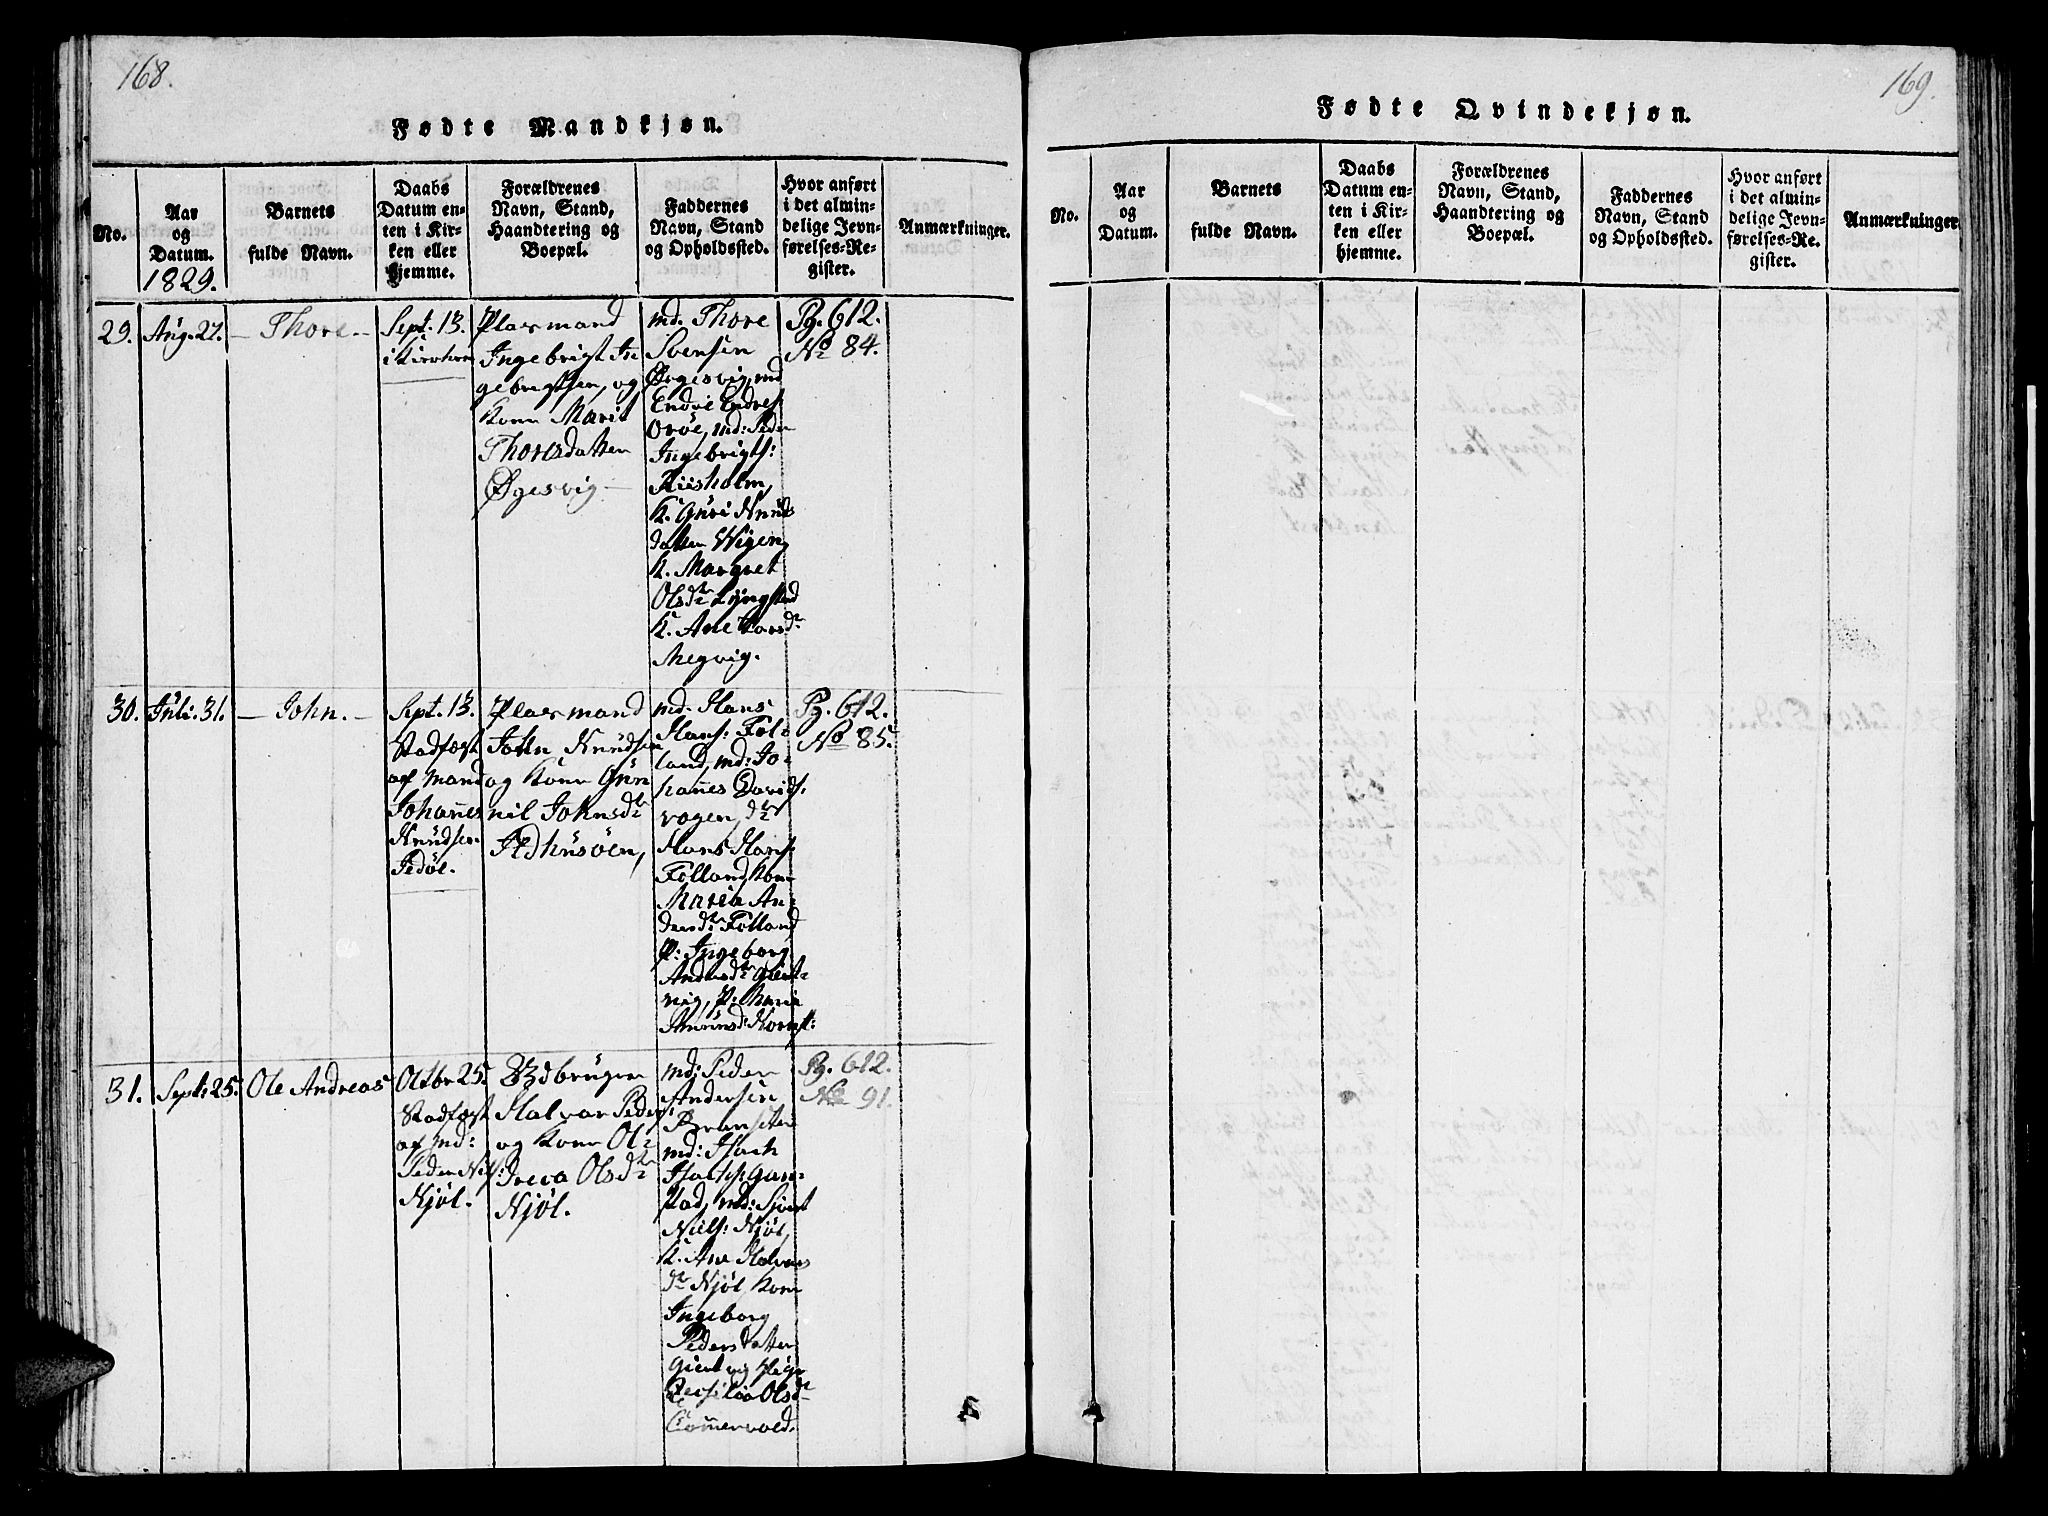 168.
Fødte Mandkjøn.
No.
Aar
og
Datum.
1829.
Barnets
fulde Navn.
Daabs
Datum en-
ten i Kir-
ken eller
hjemme.
Forældrenes
Navn, Stand,
Haandtering og
Boepæl.
Faddernes
Navn, Stand
og Opholdssted.
Hvor anført
i det almin-
delige Jevn-
førelses-Re-
gister.
Anmærkninger.
29.
Aug. 27.
Thore
Sept. 13.
i Kirken
Plasmand
Ingebrigt In
gebrigtsen, og
Kone Marit
Thoresdatter
Øgesvig
md. Thore
Svensen
Øegesvig, md
Endre Endres
Orøe, md: Peder
Ingebrigts:
Riisholm,
K. Guri Knuds
datter Wigen,
K. Margret
Olsdr Lÿngstad
K. Ane Larsdr
Megvig.
Pg. 612.
No 84.
30.
Juli. 31.
John.
Sept. 13.
Stadfæst
af Mand
Johannes
Knudsen
Jedøl.
Plasmand
John Knudsen
og Kone Gun
nil Johnsdr
Jedhusøen,
md. Hans
Hans: Fol
land, md: Jo-
hannes Davids:
vogen, dr
Hans Hans:
Folland, Kone
Maria An-
dersdr Folland
P: Ingeborg
Andersdr Giert-
vig, P: Marie
Pg. 612.
No 85.
31.
Sept: 25.
Ole Andreas
Octbr 25.
Stadfæst
af md:
Peder Niels:
Njøl.
Bedbruger
Halvor Peders:
og Kone Ol
Njøl.
md: Peder
Andersen
md: Isach
md: Sjvert
Niels: Njøl,
K. Ane Halvors
dr Njøl Kone
Ingeborg
Pedersdatter
Giertvig Pige
Cecsilia Olsdr
Pg. 612.
No 91.
169.
Fødte Qvindekjøn.
No.
Aar
og
Datum.
Barnets
fulde Navn.
Daabs
Datum en-
ten i Kir-
ken eller
hjemme.
Forældrenes
Navn, Stand,
Haandtering og
Boepæl.
Faddernes
Navn, Stand
og Opholdssted.
Hvor anført
i det almin-
delige Jevn-
førelses-Re-
gister.
Anmærkninger